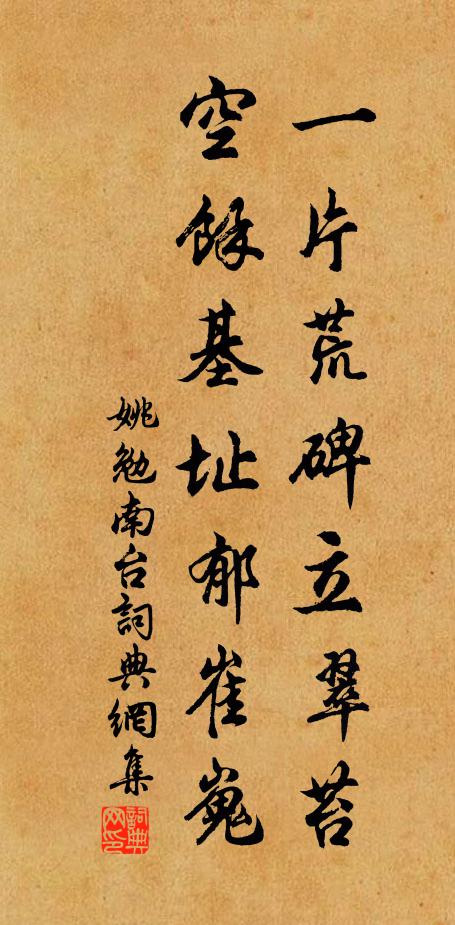 一片荒碑立翠苔
空餘基址郁崔嵬
姚勉南台詞典網集
詞典网印